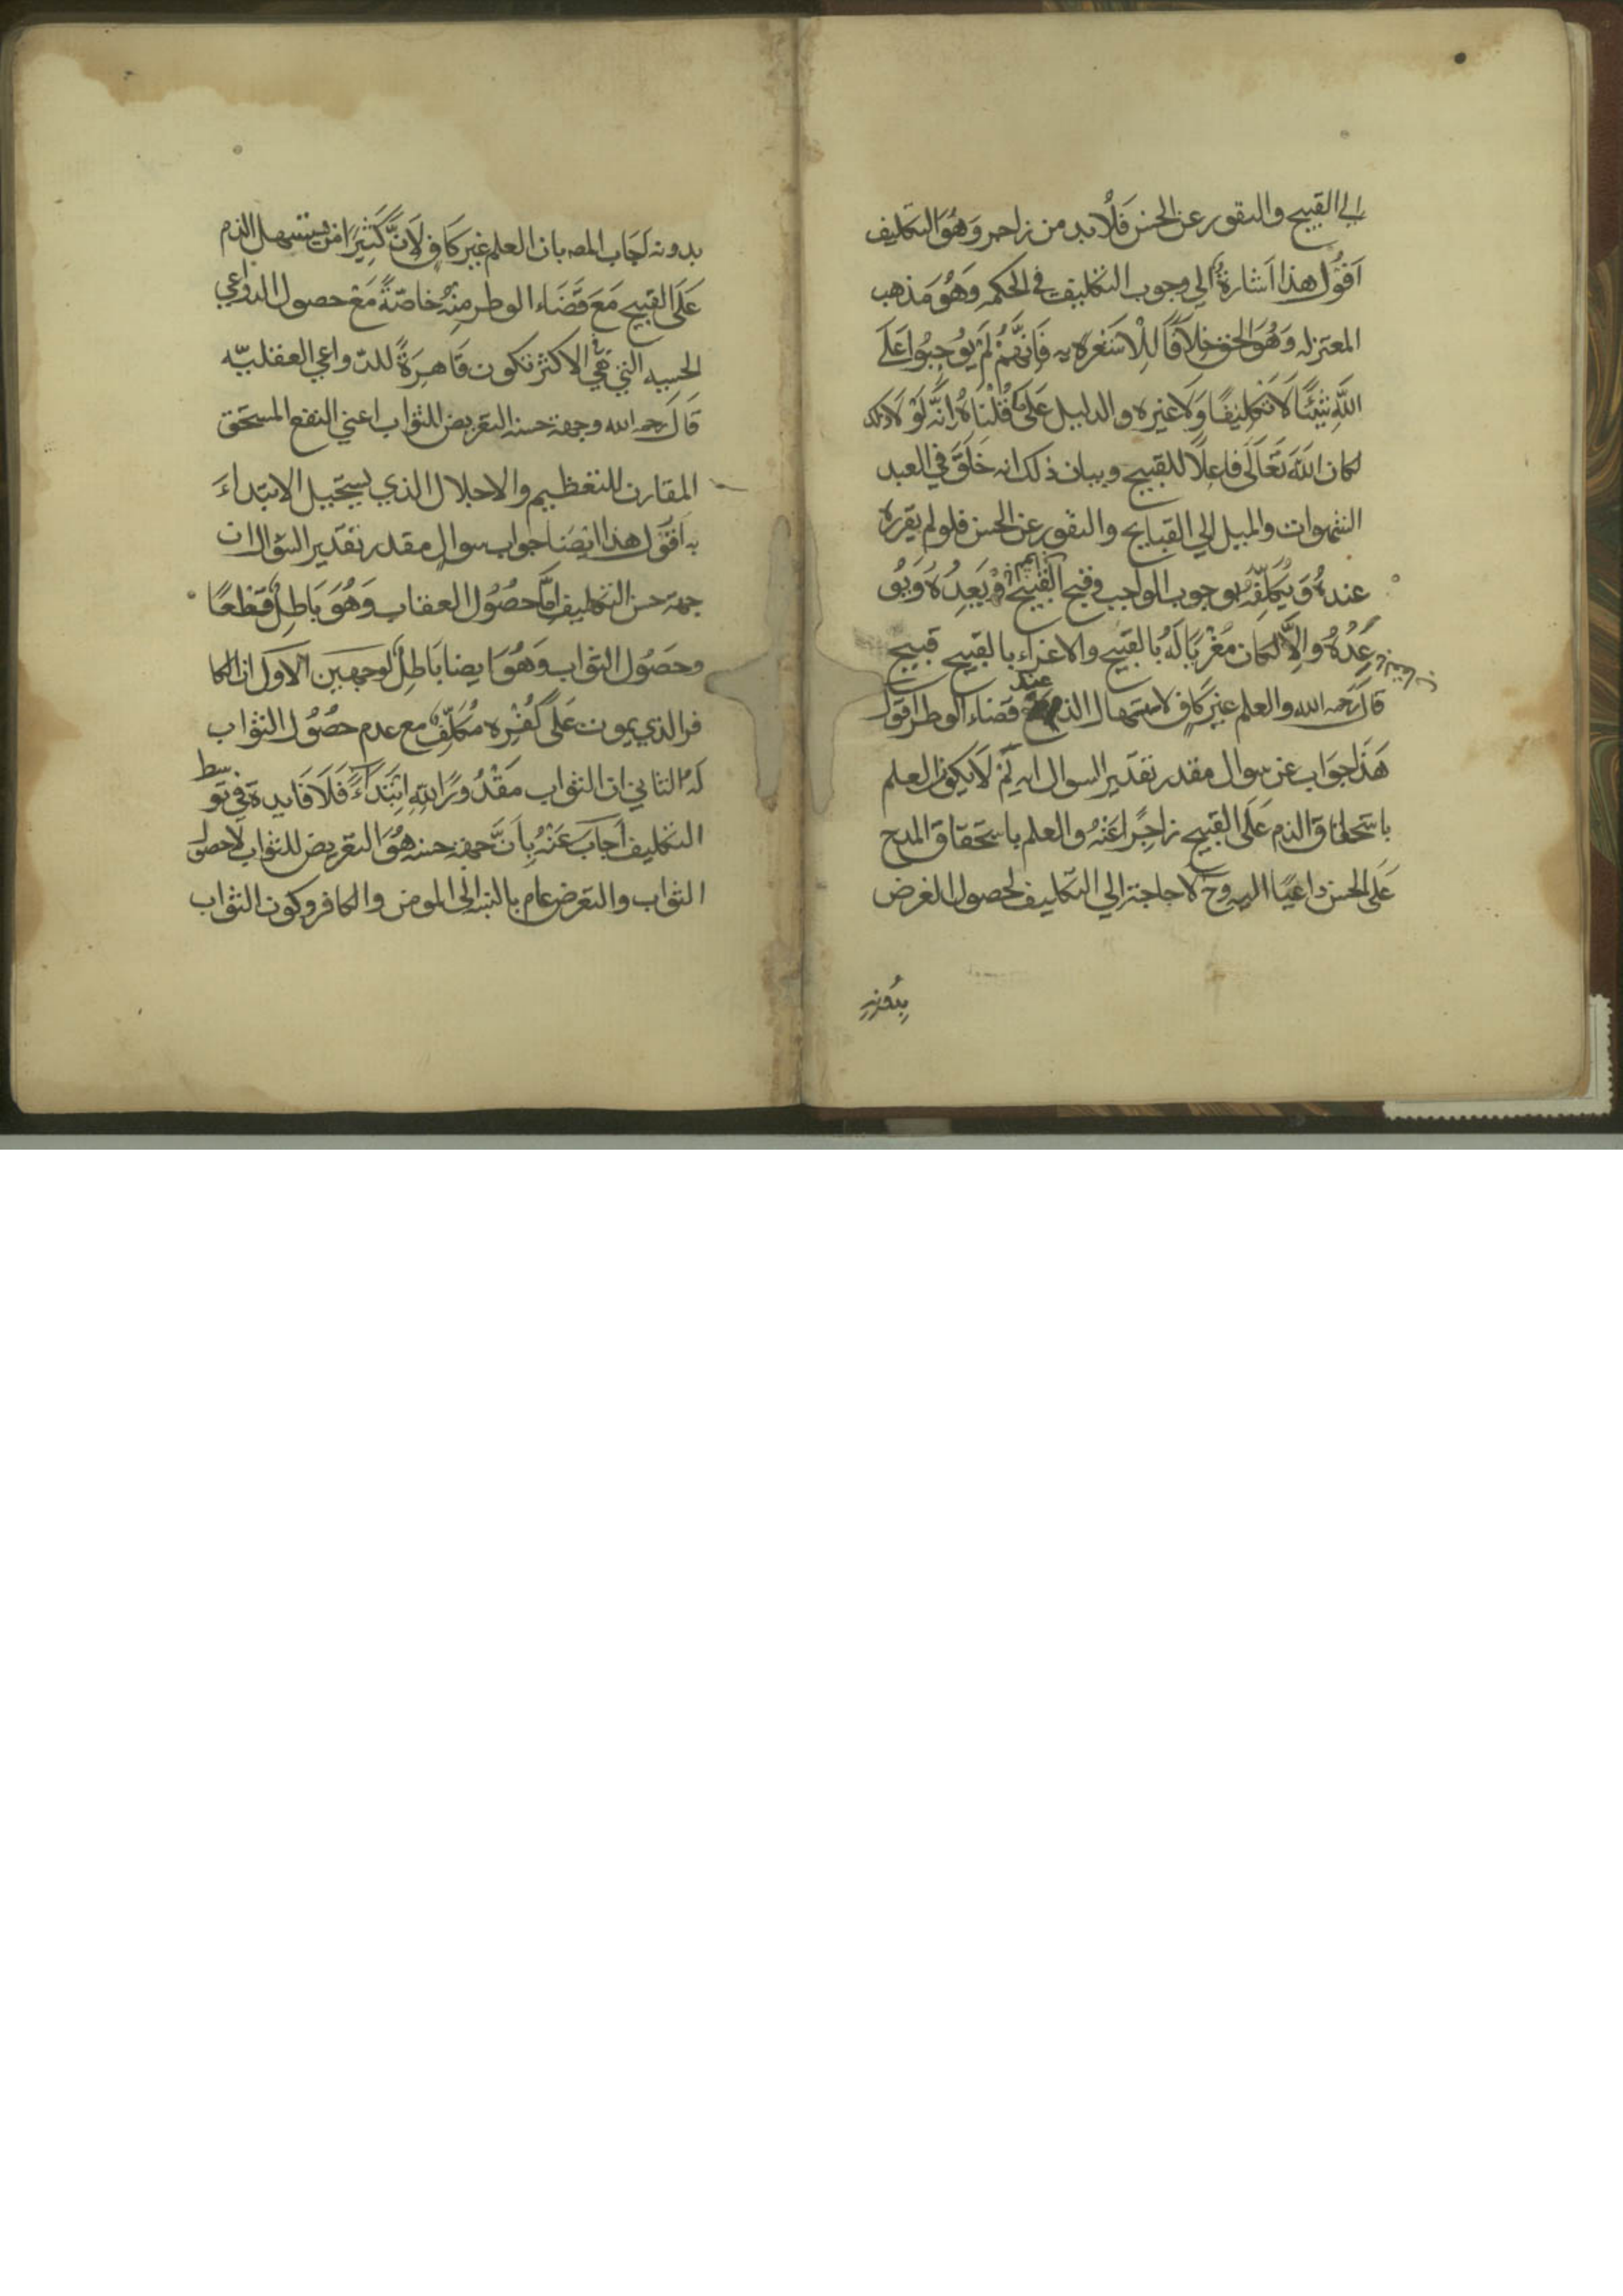 الي القبيح والنفور عن الحسن فَلاُ بد من زاجر وَهُوَ التكليف
اَقُوُل هذا اَشارةٌ الي وجوب التكليف في الحكمه وَهُوَ مَذهب
المعتزله وَهُوَ الحق خِلاَفًا لِلْاَشعَريه فَاِنهَّمُ لَمْ يُوجِبُوا عَلَى
اللَّهِ شَيْئًا لَا تَكْلِيفًا وَلَا غيره والدليل عَلى ما قُلْنَاهُ اِنَّه لَوْ لَا ذلك
لكان اللَّه تَعَالَى فاعِلًا للقبيح وبيان ذلك انه خَلَقَ في العبد
الشهوات والميل الي القبايح والنفور عن الحسن فلو لم يقرره
عندهُ وَيُكَلِّفْهُ بوجوب الواجب وقبح القبيح وَيَعِدُهُ وَيَتَو
عَدُهُ والاَّ لكان مُغْرِيًا لَهُ بالقبيح والاغراء بالقبيح قبيح
قال رحمه الله والعلم غير كاف لاستهال الذم عند قضاء الوطر اقول
هَذا جَوَاب عن سوال مقدر تقدير السوال انه لِمَ لَا يكون العلم
باستحقاق الذم عَلَى القبيح زاجِرًا عَنْهُ والعلم باستحقاق المدح
عَلَى الحسن داعيًا اليه وح لا حاجة الي التكليف لحصول الغرض
بدُونِهِ
بدونه اَجاب المصه بان العلم غير كاف لِاَنَّ كَثِيرًا من يستسهل الذم
عَلَى القبيح مَعَ قَضَاء الوطر مِنْهُ خاصّةً مَعَ حصول الدواعي
الحسيه التي هي في الاكثر تكون قَاهِرَةً للدّواعي العقليّه
قَالَ رحمه الله وجهة حسنه التعريض للثواب اعني النفع المستحق
المقارن للتعظيم والاجلال الذي يستحيل الابتداءَ
به اَقُول هذا ايضَا جواب سوال مقدر تقدير السؤال ان
جهة حسن التكليف امَّا حصُوُل العقاب وَهُوَ بَاطِلٌ قَطْعًا
وحصُول الثواب وَهُوَ ايضا بَاطِل لوجهين الاول ان الكا
فر الذي يموت عَلَى كُفْرِه مُكَلَّفٌ مع عدم حصُوُل الثواب
لهُ الثاني ان الثواب مَقْدُورًا لِلّهِ ابْتِدَاءً فَلَا فَايدة في تو
سط
التكليف اَجابَ عَنْهُ بِاَنَّ جهة حسنه هُوَ التعريض للثواب لا حصول
الثواب والتعرض عام بالنسبه الى المومن والكافر وكون الثواب